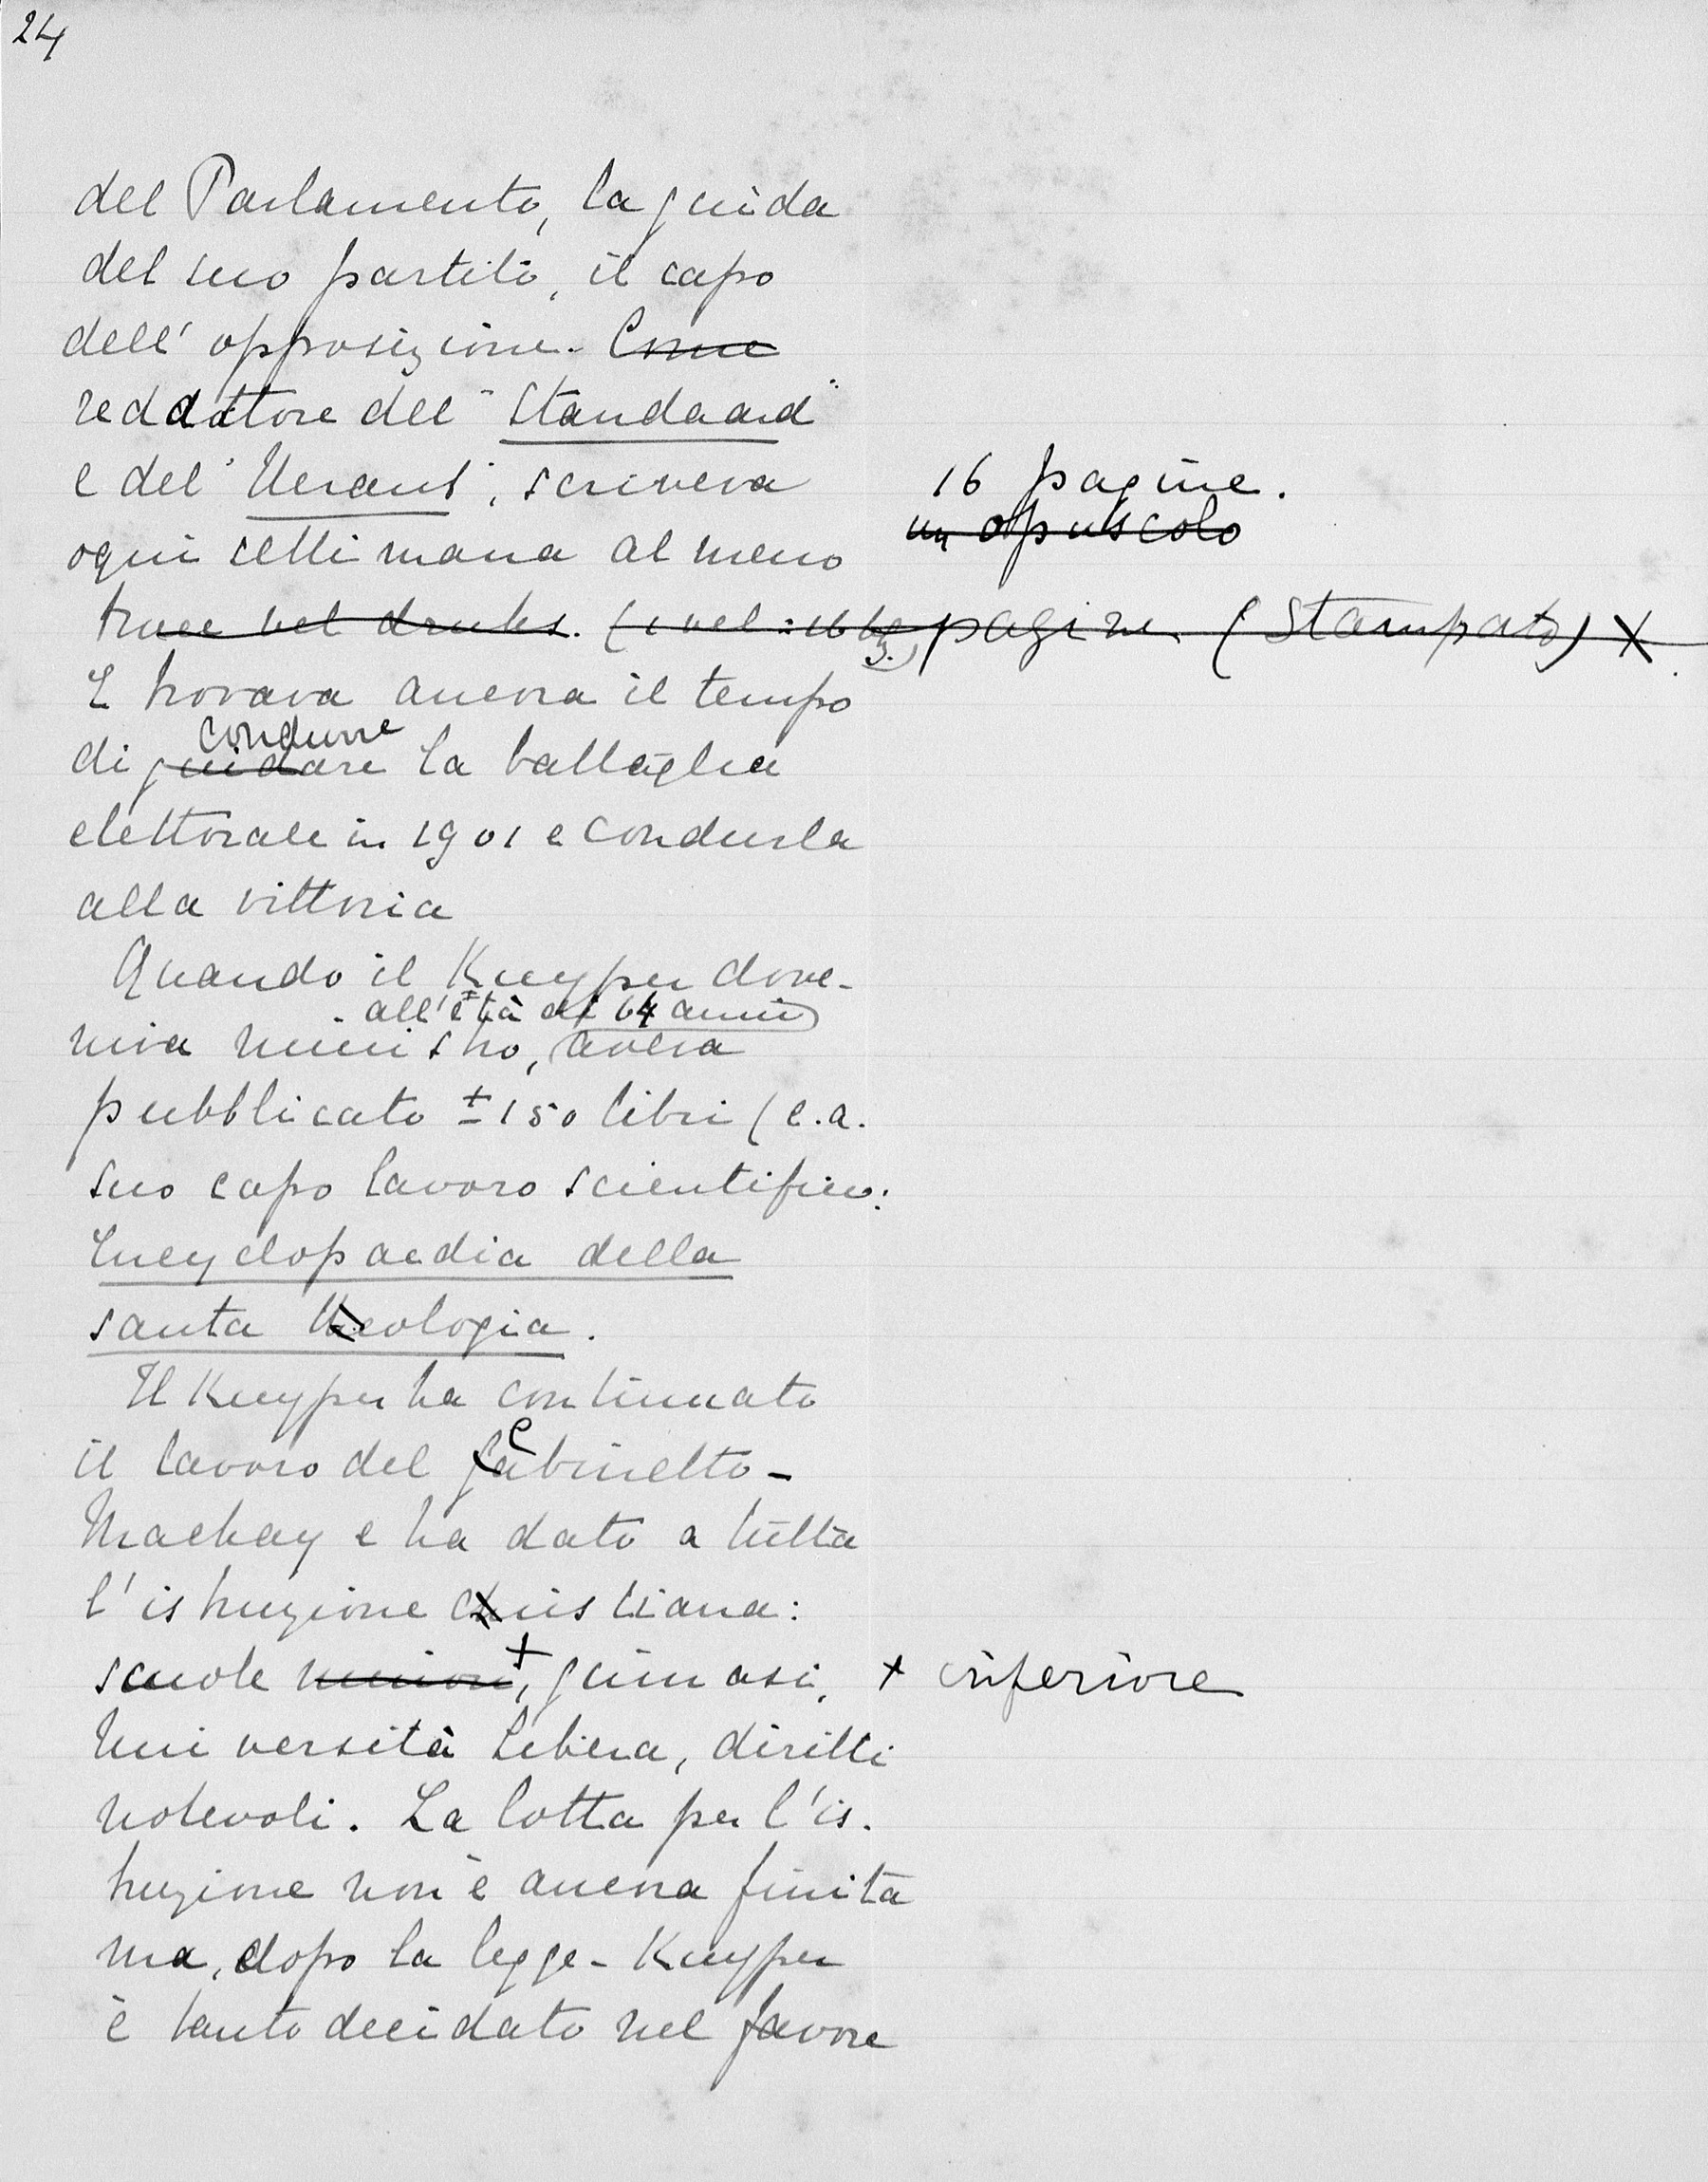 24
del Parlamento, la guida
del suo partito, il capo
dell' opposizione. Come
redattore del "Standaard"
e del "Heraut", scriveva
16 pagine.
un opuscolo
ogni settimana al meno
twee vel druks. (1 vel = 16 blz.) pagine (Stampato) X
E trovava ancora il tempo
condurre
di guidare la battaglia
elettorale in 1901 e condurla
alla vittoria
Quando il Kuyper dove-
all'età di 64 anni
niva ministro, aveva
pubblicato ± 150 libri (e.a.
suo capo lavoro scientifico:
Encyclopaedia della
santa theologia.
Il Kuyper ha continuato
il lavoro del Gabinetto-
Mackay e ha dato a tutta
l'istruzione christiana:
scuole minori +, gimnasi, + inferiore
Università Libera, diritti
notevoli. La lotta per l'is-
truzione non è ancora finita
ma, dopo la legge-Kuyper
è tanto decidato nel favore